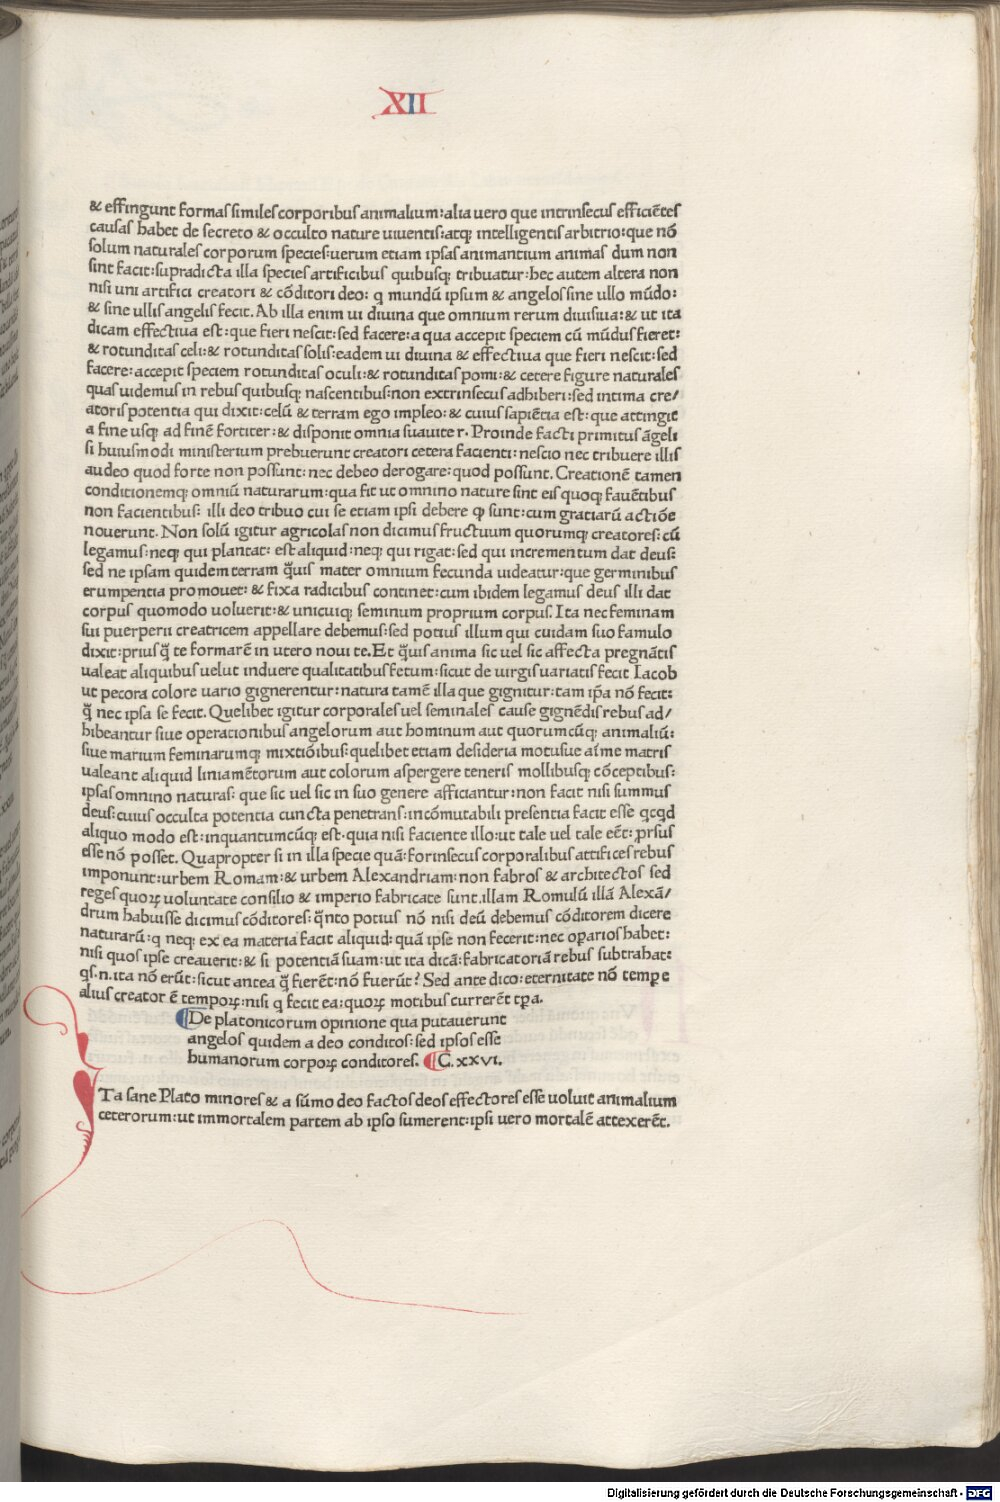 XII
& effingunt formas similes corporibus animalium: alia uero que intrinsecus efficiẽtes
causas habet de secreto & occulto nature uiuentis: atq; intelligentis arbitrio: que nõ
solum naturales corporum species: uerum etiam ipsas animantium animas dum non
sint facit: supradicta illa species artificibus quibusq; tribuatur: hec autem altera non
nisi uni artifici creatori & cõditori deo: q mundũ ipsum & angelos sine ullo mũdo:
& sine ullis angelis fecit. Ab illa enim ui diuina que omnium rerum diuisiua: & ut ita
dicam effectiua est: que fieri nescit: sed facere: a qua accepit speciem cũ mũdus fieret:
& rotunditas celi: & rotunditas solis: eadem ui diuina & effectiua que fieri nescit: sed
facere: accepit speciem rotunditas oculi: & rotunditas pomi: & cetere figure naturales
quas uidemus in rebus quibusq; nascentibus: non extrinsecus adhiberi: sed intima cre/
atoris potentia qui dixit: celũ & terram ego impleo: & cuius sapiẽtia est: que attingit
a fine usq; ad finẽ fortiter: & disponit omnia suauiter. Proinde facti primitus ãgeli
si huiusmodi ministerium prebuerunt creatori cetera facienti: nescio nec tribuere illis
audeo quod forte non possunt: nec debeo derogare: quod possunt. Creationẽ tamen
conditionemq; omniũ naturarum: qua fit ut omnino nature sint eis quoq; fauẽtibus
non facientibus: illi deo tribuo cui se etiam ipsi debere q̨ sunt: cum gratiarũ actiõe
nouerunt. Non solũ igitur agricolas non dicimus fructuum quorumq; creatores: cũ
legamus: neq; qui plantat: est aliquid: neq; qui rigat: sed qui incrementum dat deus:
sed ne ipsam quidem terram q̃uis mater omnium fecunda uideatur: que germinibus
erumpentia promouet: & fixa radicibus continet: cum ibidem legamus deus illi dat
corpus quomodo uoluerit: & unicuiq; seminum proprium corpus. Ita nec feminam
sui puerperii creatricem appellare debemus: sed potius illum qui cuidam suo famulo
dixit: prius q̃ te formarẽ in utero noui te. Et q̃uis anima sic uel sic affecta pregnãtis
ualeat aliquibus uelut induere qualitatibus fetum: sicut de uirgis uariatis fecit Iacob
ut pecora colore uario gignerentur: natura tamẽ illa que gignitur: tam ip̃a nõ fecit:
q̃ nec ipsa se fecit. Quelibet igitur corporales uel seminales cause gignẽdis rebus ad/
hibeantur siue operationibus angelorum aut hominum aut quorumcũq; animaliũ:
siue marium feminarumq; mixtiõibus: quelibet etiam desideria motusue aĩme matris
ualeant aliquid liniamẽtorum aut colorum aspergere teneris mollibusq; cõceptibus:
ipsas omnino naturas: que sic uel sic in suo genere afficiantur: non facit nisi summus
deus: cuius occulta potentia cuncta penetrans: incõmutabili presentia facit esse qcqd
aliquo modo est: inquantumcũq; est. quia nisi faciente illo: ut tale uel tale eẽt: ꝓrsus
esse nõ posset. Quapropter si in illa specie quã: forinsecus corporalibus attifices rebus
imponunt: urbem Romam: & urbem Alexandriam: non fabros & architectos sed
reges quoꝝ uoluntate consilio & imperio fabricate sunt. illam Romulũ illã Alexã/
drum habuisse dicimus cõditores: q̃nto potius nõ nisi deũ debemus cõditorem dicere
naturarũ: q neq; ex ea materia facit aliquid: quã ipse non fecerit: nec oꝑarios habet:
nisi quos ipse creauerit: & si potentiã suam: ut ita dicã: fabricatoriã rebus subtrahat:
qs̃. n. ita nõ erũt: sicut antea q̃ fierẽt: nõ fuerũt? Sed ante dico: eternitate nõ tempe
alius creator ẽ tempoꝝ: nisi q fecit ea: quoꝝ motibus currerẽt tꝑa.
De platonicorum opinione qua putauerunt
angelos quidem a deo conditos: sed ipsos esse
humanorum corpoꝝ conditores. C. xxvi.
Ta sane Plato minores & a sũmo deo factos deos effectores esse uoluit animalium
ceterorum: ut immortalem partem ab ipso sumerent: ipsi uero mortalẽ attexerẽt.
Digitalisierung gefördert durch die Deutsche Forschungsgemeinschaft - DFG